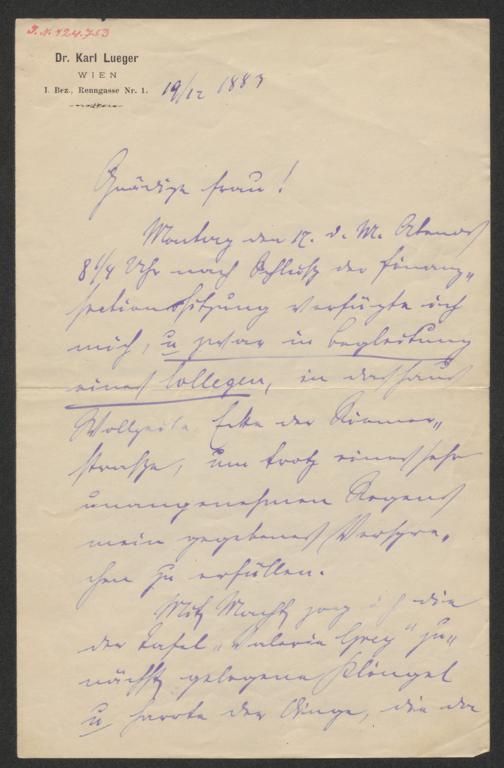 J. N. 124.753
Dr. Karl Lueger
WIEN
I. Bez., Renngasse Nr. 1.
19/12 1883
Gnädige Frau!
Montag den 17. d. M. Abends
8 1/4 Uhr nach Schluß der Finanz„
sectionssitzung verfügte ich
mich, u zwar in Begleitung
eines Collegen, in das Haus
Wollzeile Ecke der Riemer„
straße, um trotz eines sehr
unangenehmen Regens
mein gegebenes Verspre„
chen zu erfüllen.
Mit Macht zog ich die
der Tafel „Valerie Grey“ zu„
nächst gelegene Klingel
u harrte der Dinge, die da